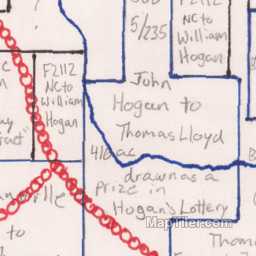 5/235
F2112
NC to
William
Hogan
F2112
NC to
William
Hogan
John
Hogan to
Thomas Lloyd
416 ac
drawn as a
prize in
Hogan's Lottery
MapTiler.com
to
Thoma